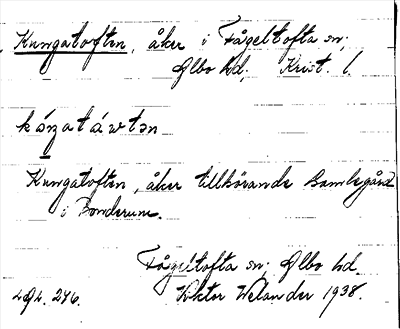 Kungatoften, åker i Fågeltofta sn;
Albo hd, Krist. l.
kóŋatávtən
Kungatoften, åker tillhörande Bamlegård
i Bonderum.
Fågeltofta sn; Albo hd.
Viktor Welander 1938.